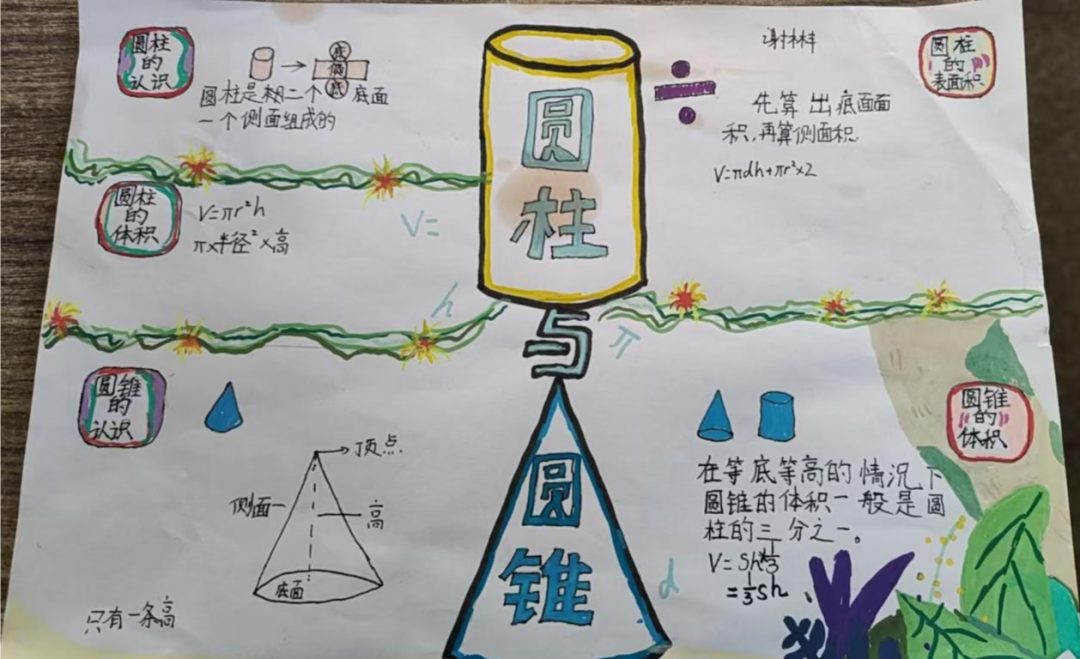 圆柱
的
认识
底
侧
底
圆柱是有二个底面
一个侧面组成的
圆柱
的
体积
V=πr²h
π×半径²×高
圆
柱
与
圆
锥
V=
h
π
d
圆柱
的
表面积
先算出底面面
积,再算侧面积.
V=πdh+πr²×2
圆锥
的
认识
顶点
侧面
高
底面
只有一条高
圆锥
的
体积
在等底等高的情况下
圆锥的体积一般是圆
柱的三分之一。
V=Sh×⅓
=⅓Sh